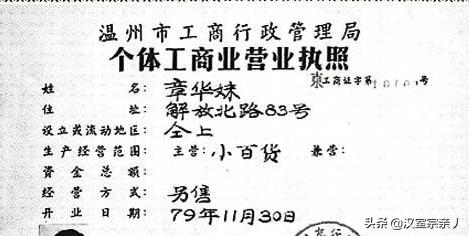 温州市工商行政管理局
个体工商业营业执照
东工商证字第10101号
姓名：章华妹
住址：解放北路83号
设立或流动地区：仝上
生产经营范围：主营：小百货 兼营：
资金总额：
经营方式：另售
开业日期：79年11月30日
头条@汉室宗亲丿